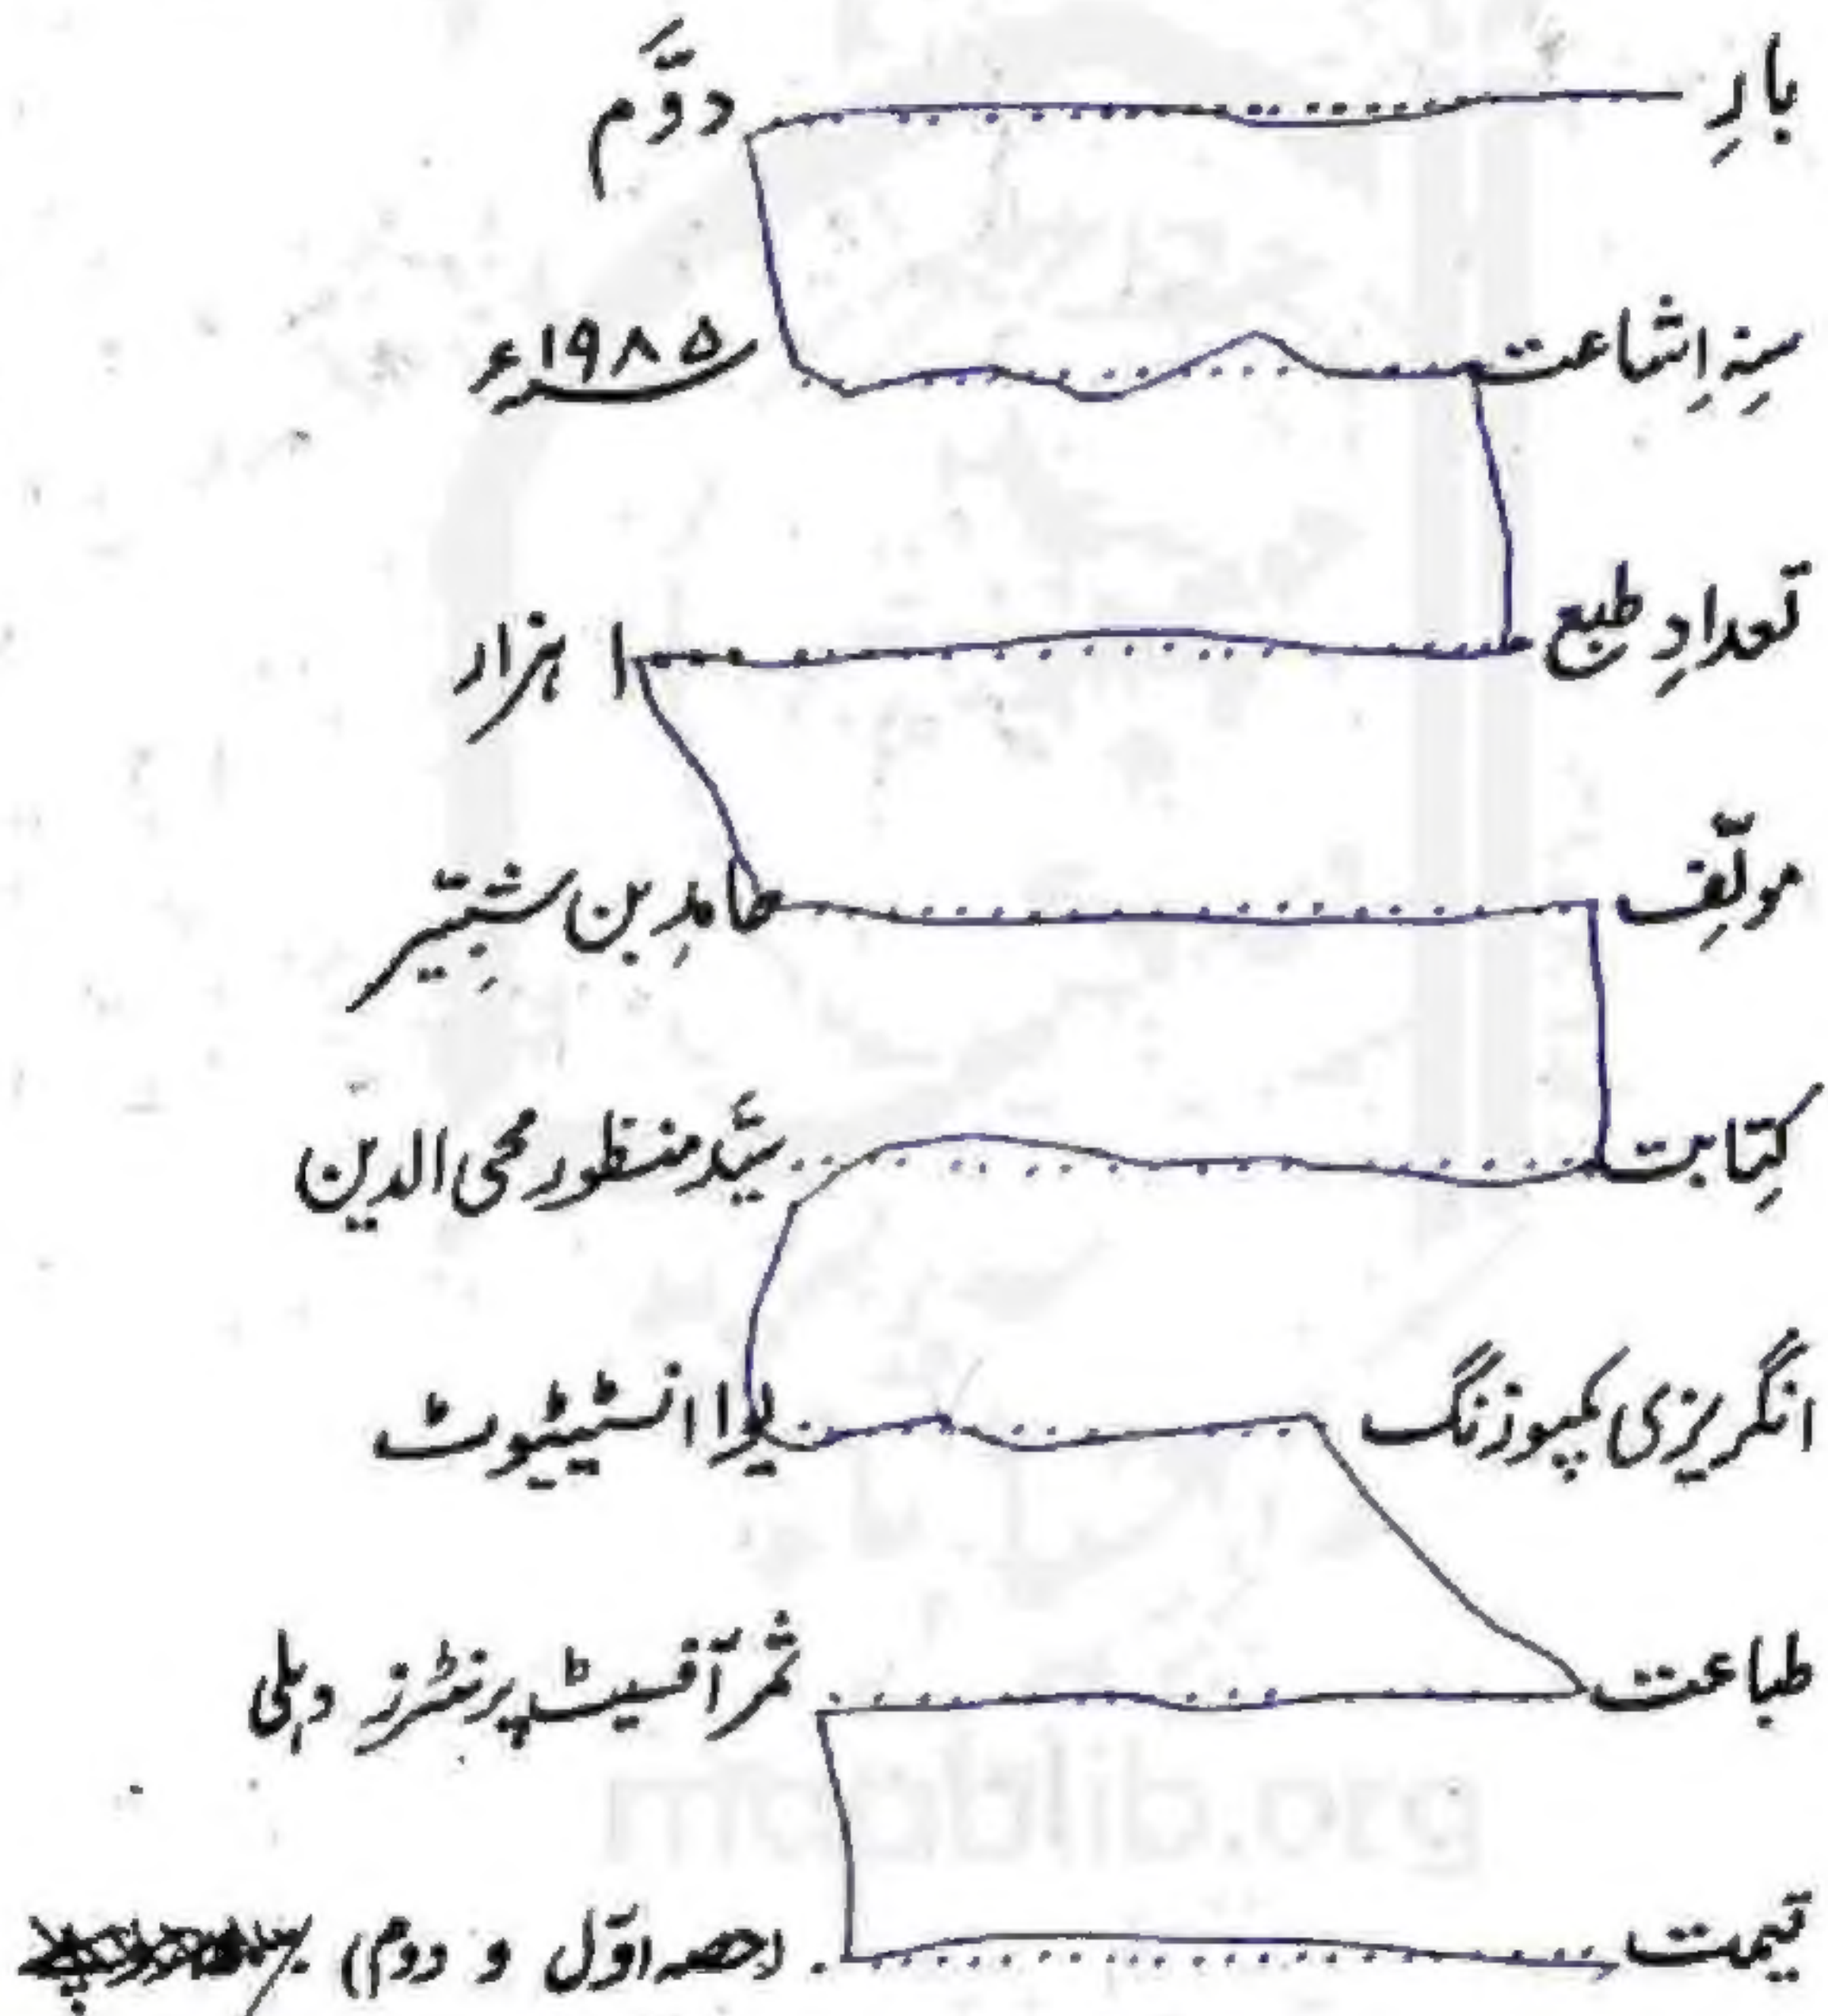 بارِ ........ دوَّم
سِنہ اِشاعت ........ ۱۹۸۵ء
تعدادِ طبع ........ ۱ ہزار
مولّف ........ حامد بن شبّیر
کِتابت ........ سیَّد منظور محی الدین
انگریزی کمپوزنگ ........ لیزرا انسٹیٹیوٹ
طباعت ........ ثمر آفسیٹ پرنٹرز دہلی
قیمت ........ (حصہ اوّل و دوم)
maablib.org